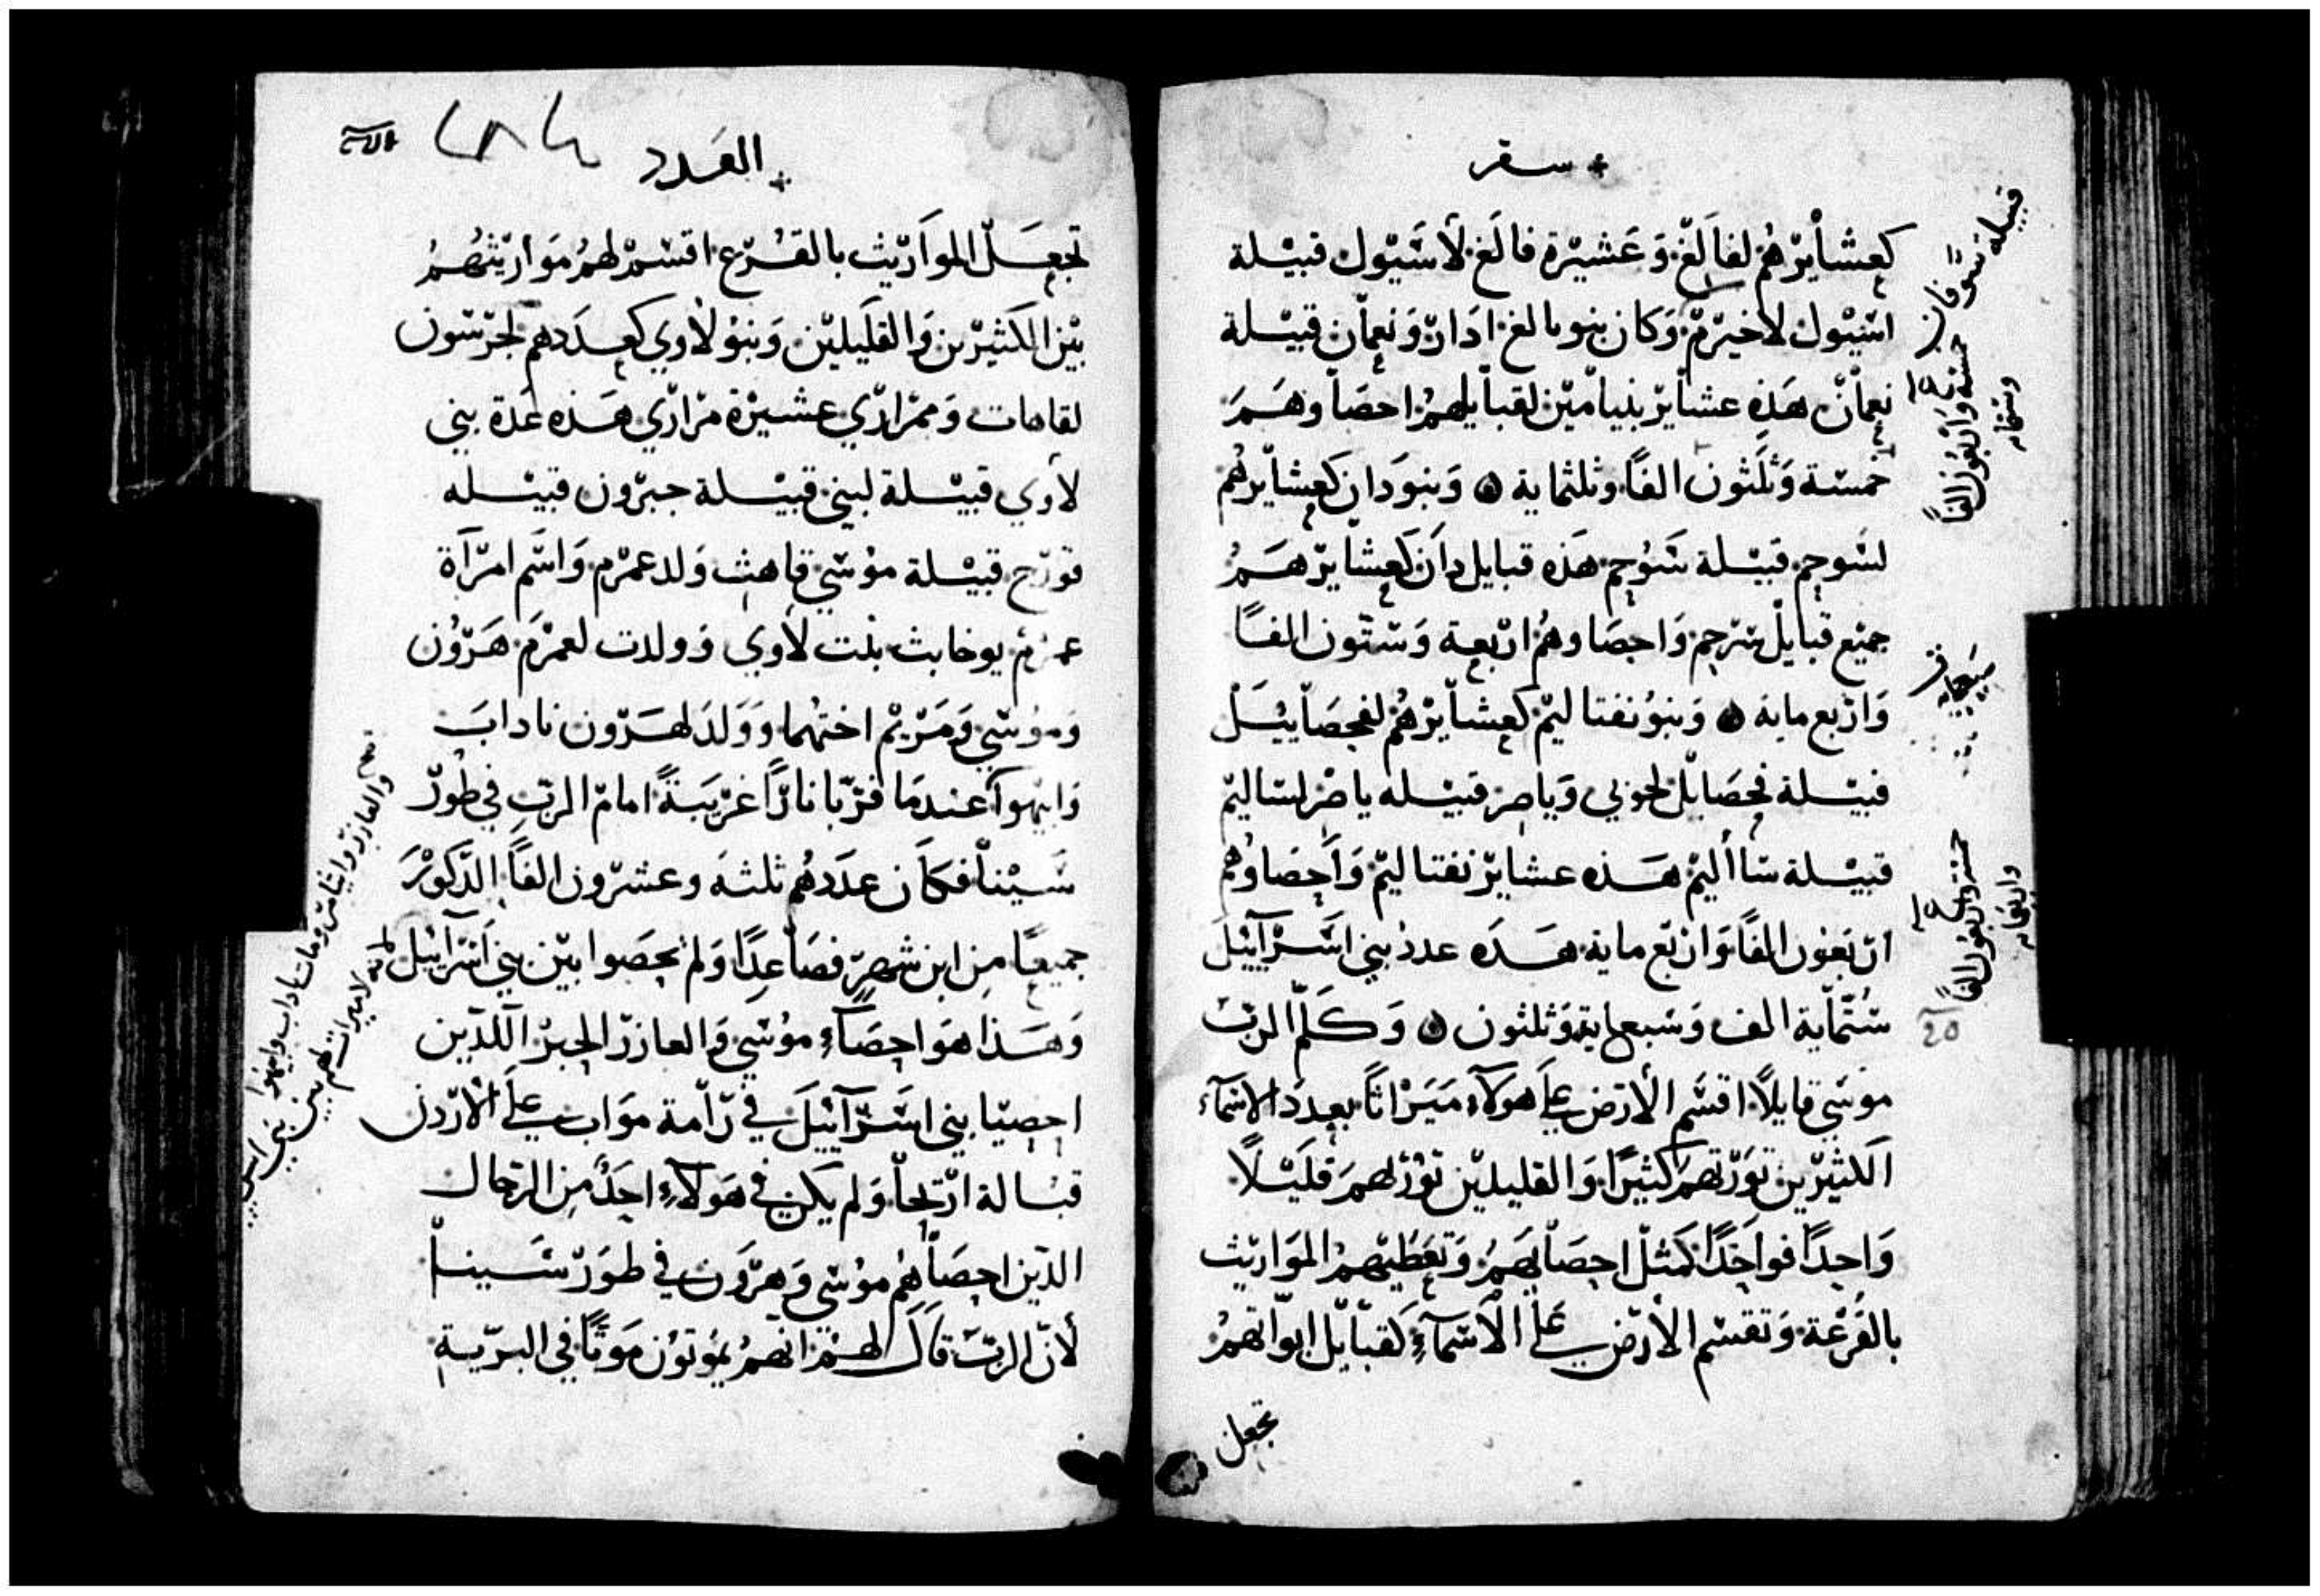 سفر
كعشايرهم لفالغ وعشيرة فالغ لاشيول قبيلة
اشيول لاخيرم وكان بنو بالغ ادار ونعمان قبيلة
نعمان هذه عشاير بنيامين لقبايلهم احصا وهم
خمسة وثلثون الفًا وثلثماية ۞ وبنو دان كعشايرهم
لشوحم قبيلة شوحم هذه قبايل دان كعشايرهم
جميع قبايل شرحم واحصاوهم اربعة وستون الفًا
واربع ماية ۞ وبنو نفتاليم كعشايرهم لفحصاييل
قبيلة فحصايل لجوني وياصر قبيله ياصر لشاليم
قبيلة شااليم هذه عشاير نفتاليم واحصاوهم
اربعون الفًا واربع ماية هذه عدد بني اسراييل
ستماية الف وسبعماية وثلثون ۞ وكلم الرب
موسى قايلًا اقسم الارض على هولاء ميراثًا بعدد الاسماء
الكثيرين تورثهم كثيرًا والقليلين تورثهم قليلًا
واحدًا فواحدًا كمثل احصايهم وتعطيهم المواريث
بالقرعة وتقسم الارض على الاسماء لقبايل ابواتهم
تجعل
قبيلة شوفان
خمسة واربعون الفًا
وستمايه
خمسة واربعون الفًا
واربعمايه
25
العدد
تجعل المواريث بالقرع اقسم لهم مواريثهم
بين الكثيرين والقليلين وبنو لاوي كعددهم لجرسون
لقاهات وممراري عشيرة مراري هذه عدة بني
لاوي قبيلة لبني قبيلة حبرون قبيله
قورح قبيلة موسي قاهث ولد عمرم واسم امرآة
عمرم يوخابث بنت لاوي وولدت لعمرم هرون
وموسي ومريم اختهما وولد لهرون ناداب
وابيهوا عندما قربا نارًا غريبةً امام الرب في طور
سينا فكان عددهم ثلثه وعشرون الفًا الذكور
جميعًا من ابن شهر فصاعدًا ولم يحصوا بين بني اسراييل
وهذا هو احصاء موسي والعازر الحبر اللذين
احصيا بني اسراييل في رامة مواب على الاردن
قبالة اريحا ولم يكن في هولاء احد من الرجال
الذين احصاهم موسى وهرون في طور سينا
لان الرب قال لهم انهم يموتون موتًا في البرية
والعازر وايثامر ومات ناداب وابيهوا
لانه لا ميراث لهم بين بني